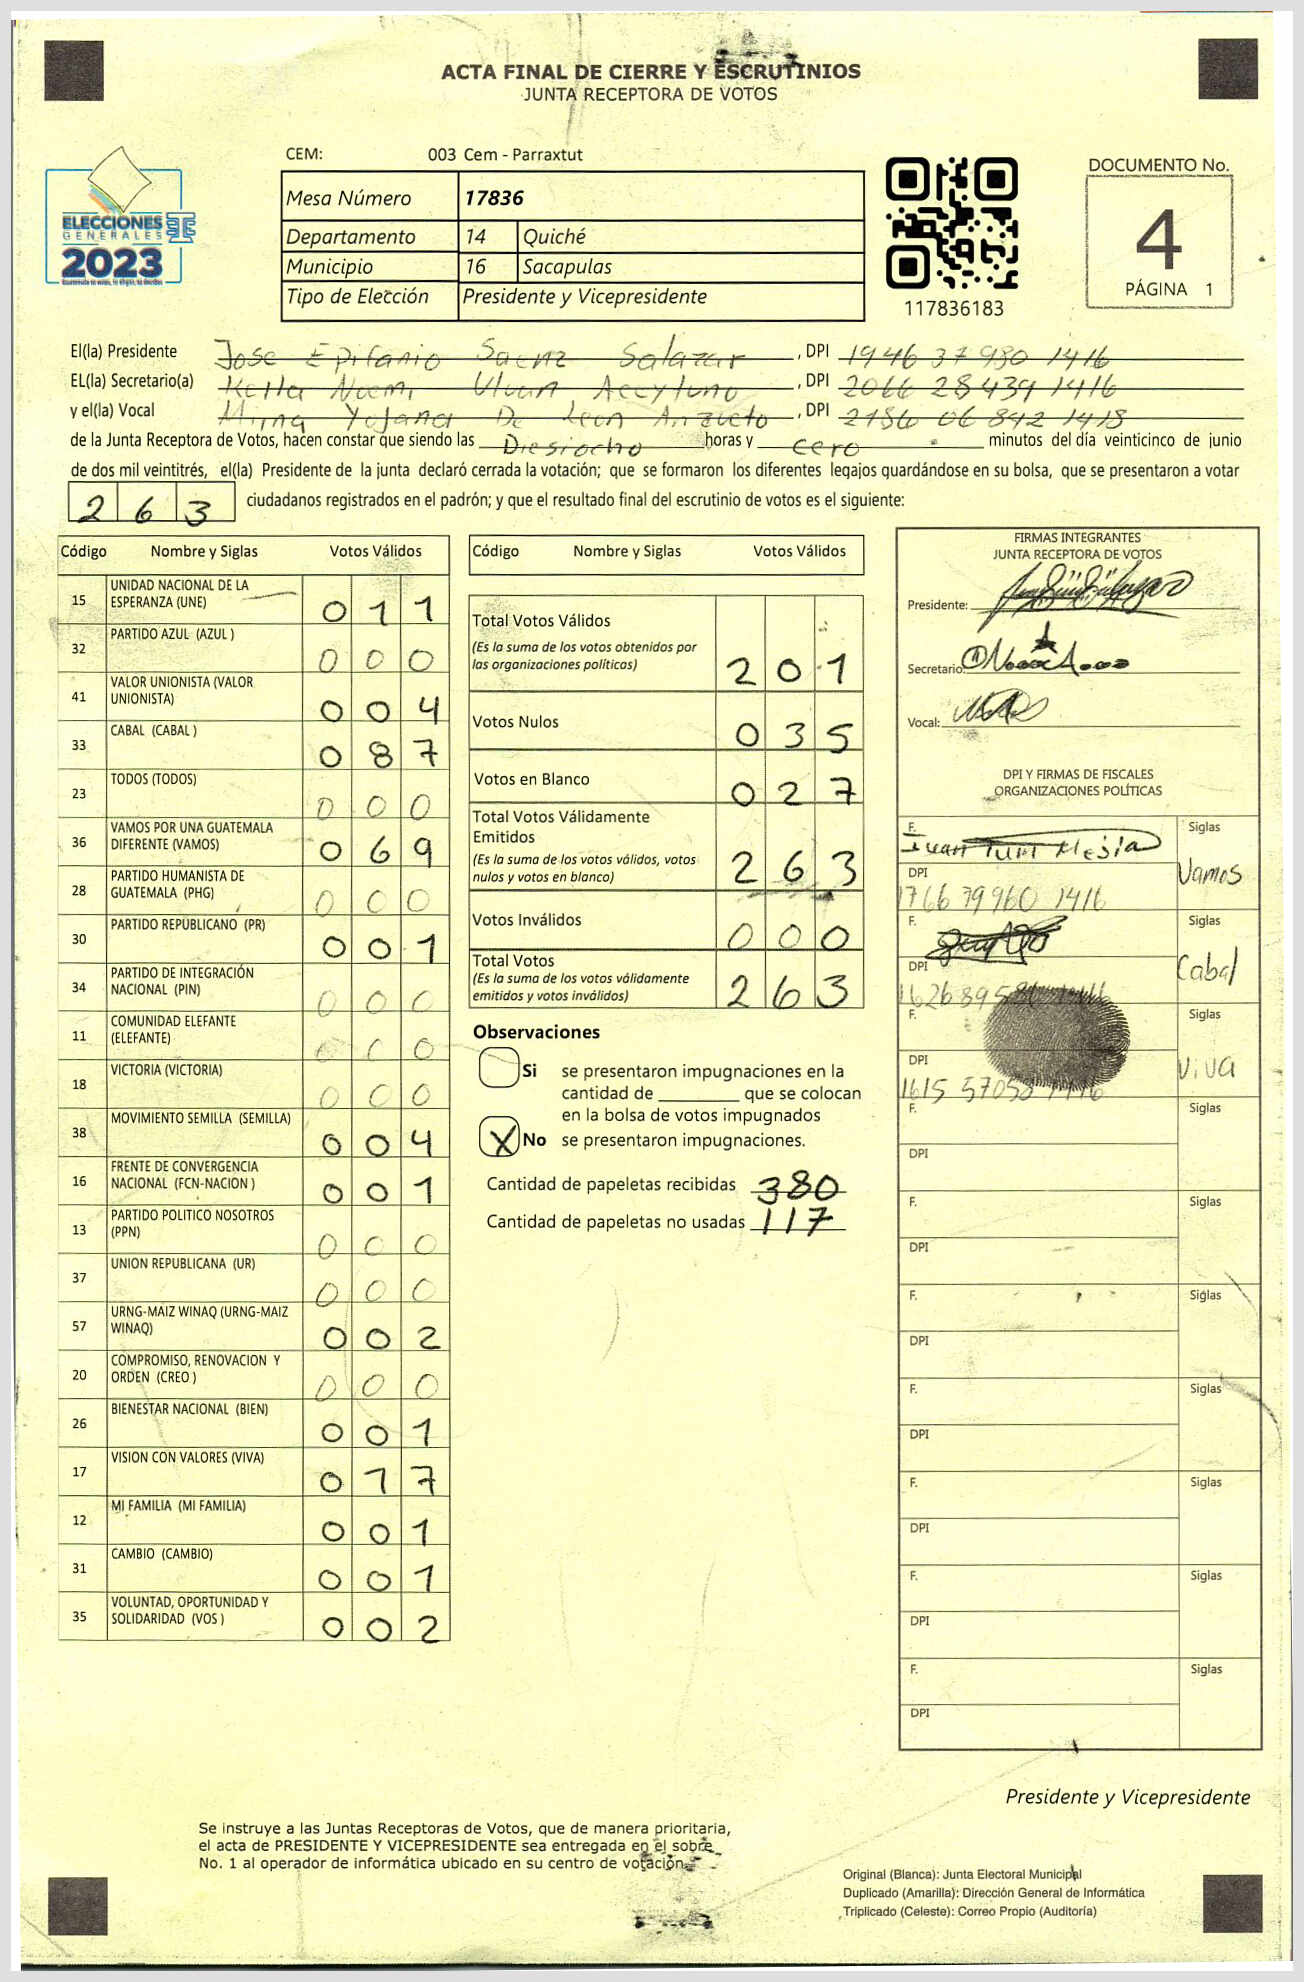 ACTA FINAL DE CIERRE Y ESCRUTINIOS
JUNTA RECEPTORA DE VOTOS
ELECCIONES
GENERALES
2023
CEM: 003 Cem - Parraxtut
Mesa Número 17836
Departamento 14 Quiché
Municipio 16 Sacapulas
Tipo de Elección Presidente y Vicepresidente
117836183
DOCUMENTO No.
4
PÁGINA 1
El(la) Presidente Jose Epifanio Saenz Salazar, DPI 1946 37980 1416
EL(la) Secretario(a) Keila Noemi Ulvan Aceytuno, DPI 2066 28439 1416
y el(la) Vocal Mirna Yojana De Leon Anzueto, DPI 2186 06842 1418
de la Junta Receptora de Votos, hacen constar que siendo las Diesiocho horas y cero minutos del día veinticinco de junio
de dos mil veintitrés, el(la) Presidente de la junta declaró cerrada la votación; que se formaron los diferentes legajos guardándose en su bolsa, que se presentaron a votar
263 ciudadanos registrados en el padrón; y que el resultado final del escrutinio de votos es el siguiente:
Código Nombre y Siglas Votos Válidos
15 UNIDAD NACIONAL DE LA ESPERANZA (UNE) 011
32 PARTIDO AZUL (AZUL ) 000
41 VALOR UNIONISTA (VALOR UNIONISTA) 004
33 CABAL (CABAL ) 087
23 TODOS (TODOS) 000
36 VAMOS POR UNA GUATEMALA DIFERENTE (VAMOS) 069
28 PARTIDO HUMANISTA DE GUATEMALA (PHG) 000
30 PARTIDO REPUBLICANO (PR) 001
34 PARTIDO DE INTEGRACIÓN NACIONAL (PIN) 000
11 COMUNIDAD ELEFANTE (ELEFANTE) 000
18 VICTORIA (VICTORIA) 000
38 MOVIMIENTO SEMILLA (SEMILLA) 004
16 FRENTE DE CONVERGENCIA NACIONAL (FCN-NACION ) 001
13 PARTIDO POLITICO NOSOTROS (PPN) 000
37 UNION REPUBLICANA (UR) 000
57 URNG-MAIZ WINAQ (URNG-MAIZ WINAQ) 002
20 COMPROMISO, RENOVACION Y ORDEN (CREO ) 000
26 BIENESTAR NACIONAL (BIEN) 001
17 VISION CON VALORES (VIVA) 017
12 MI FAMILIA (MI FAMILIA) 001
31 CAMBIO (CAMBIO) 001
35 VOLUNTAD, OPORTUNIDAD Y SOLIDARIDAD (VOS ) 002
Código Nombre y Siglas Votos Válidos
Total Votos Válidos 201
(Es la suma de los votos obtenidos por
las organizaciones políticas)
Votos Nulos 035
Votos en Blanco 027
Total Votos Válidamente
Emitidos 263
(Es la suma de los votos válidos, votos
nulos y votos en blanco)
Votos Inválidos 000
Total Votos 263
(Es la suma de los votos válidamente
emitidos y votos inválidos)
Observaciones
Si se presentaron impugnaciones en la
cantidad de ________ que se colocan
en la bolsa de votos impugnados
X No se presentaron impugnaciones.
Cantidad de papeletas recibidas 380
Cantidad de papeletas no usadas 117
FIRMAS INTEGRANTES
JUNTA RECEPTORA DE VOTOS
Presidente:
Secretario:
Vocal:
DPI Y FIRMAS DE FISCALES
ORGANIZACIONES POLÍTICAS
F. Juan Tum Mejia Siglas
DPI Vamos
1766 79960 1416
F. Siglas
DPI Cabal
F. Siglas
DPI Viva
1615 57058 1416
F. Siglas
DPI
F. Siglas
DPI
F. Siglas
DPI
F. Siglas
DPI
F. Siglas
DPI
F. Siglas
DPI
F. Siglas
DPI
Presidente y Vicepresidente
Se instruye a las Juntas Receptoras de Votos, que de manera prioritaria,
el acta de PRESIDENTE Y VICEPRESIDENTE sea entregada en el sobre
No. 1 al operador de informática ubicado en su centro de votación.
Original (Blanca): Junta Electoral Municipal
Duplicado (Amarilla): Dirección General de Informática
Triplicado (Celeste): Correo Propio (Auditoría)